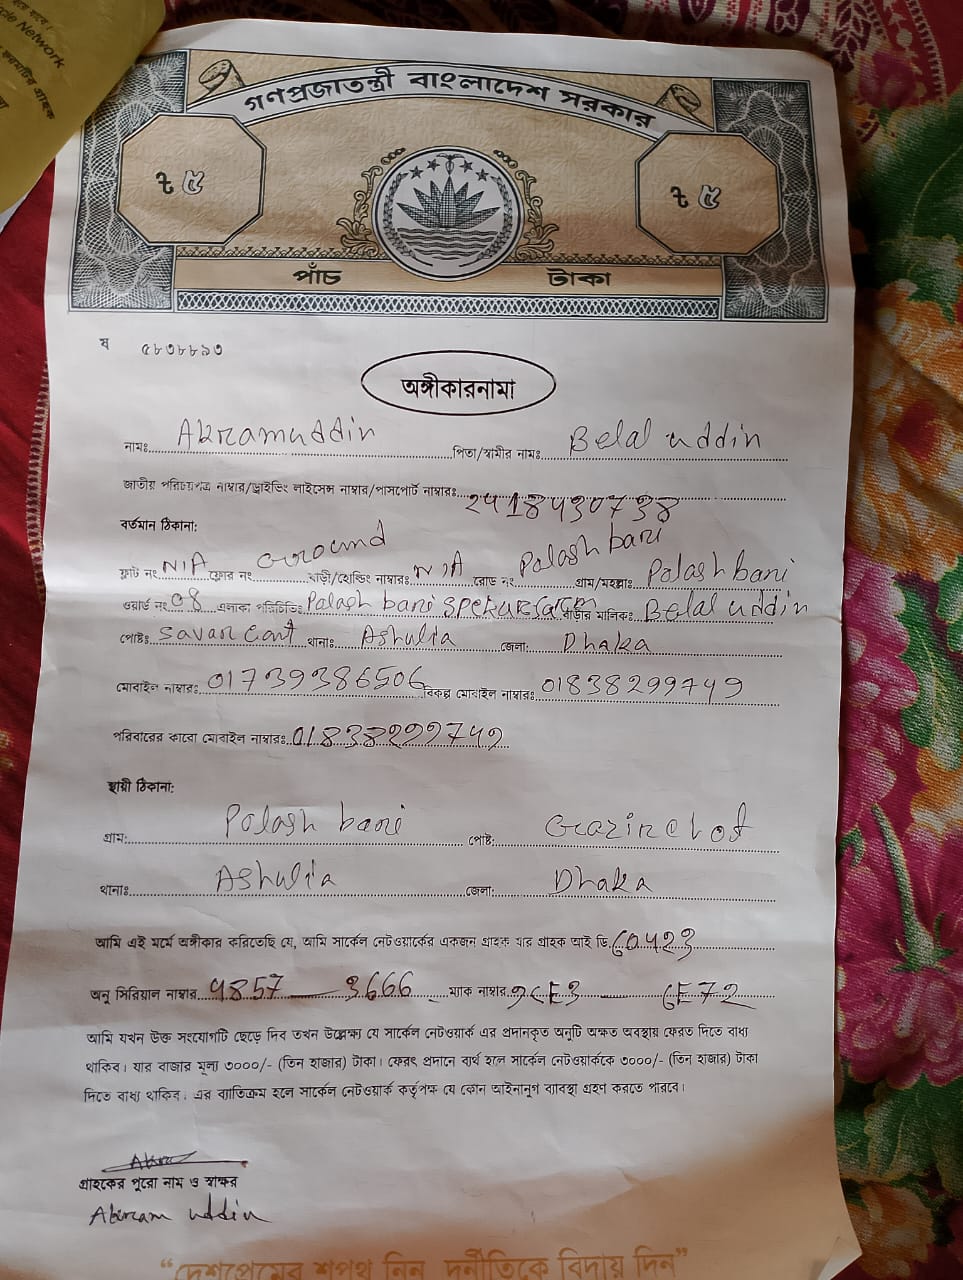 গণপ্রজাতন্ত্রী বাংলাদেশ সরকার
৳ ৫ ৳ ৫
পাঁচ টাকা
ষ ৫৮৩৮৮৯৩
অঙ্গীকারনামা
নামঃ Akramuddin পিতা/স্বামীর নামঃ Belal uddin
জাতীয় পরিচয়পত্র নাম্বার/ড্রাইভিং লাইসেন্স নাম্বার/পাসপোর্ট নাম্বারঃ 2418430738
বর্তমান ঠিকানা:
ফ্লাট নং N/A ফ্লোর নং Ground বাড়ী/হোল্ডিং নাম্বারঃ N/A রোড নং Palash bari গ্রাম/মহল্লাঃ Palash bari
ওয়ার্ড নং 08 এলাকা পরিচিতিঃ Palash bari বাড়ীর মালিকঃ Belal uddin
পোষ্টঃ Savar Cant থানাঃ Ashulia জেলা: Dhaka
মোবাইল নাম্বারঃ 01739386506 বিকল্প মোবাইল নাম্বারঃ 01838299749
পরিবারের কারো মোবাইল নাম্বারঃ 01838299749
স্থায়ী ঠিকানা:
গ্রাম: Palash bari পোষ্ট:
থানাঃ Ashulia জেলা: Dhaka
আমি এই মর্মে অঙ্গীকার করিতেছি যে, আমি সার্কেল নেটওয়ার্কের একজন গ্রাহক যার গ্রাহক আই ডি. 60423
অনু সিরিয়াল নাম্বার 4857 — 3666 ম্যাক নাম্বার 9CE3 — 6E72
আমি যখন উক্ত সংযোগটি ছেড়ে দিব তখন উল্লেক্ষ্য যে সার্কেল নেটওয়ার্ক এর প্রদানকৃত অনুটি অক্ষত অবস্থায় ফেরত দিতে বাধ্য
থাকিব। যার বাজার মূল্য ৩০০০/- (তিন হাজার) টাকা। ফেরৎ প্রদানে ব্যর্থ হলে সার্কেল নেটওয়ার্ককে ৩০০০/- (তিন হাজার) টাকা
দিতে বাধ্য থাকিব। এর ব্যতিক্রম হলে সার্কেল নেটওয়ার্ক কর্তৃপক্ষ যে কোন আইনানুগ ব্যাবস্থা গ্রহণ করতে পারবে।
গ্রাহকের পুরো নাম ও স্বাক্ষর
Akram uddin
“দেশপ্রেমের শপথ নিন, দুর্নীতিকে বিদায় দিন”